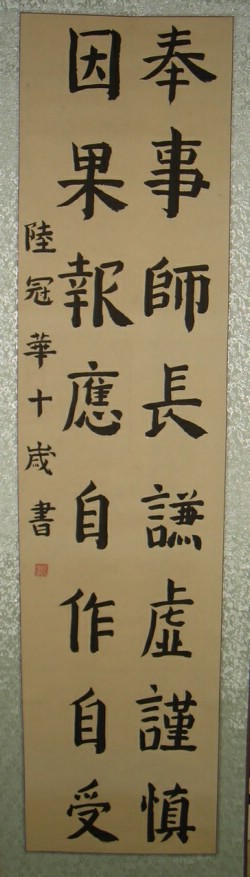 奉事師長謙虛謹慎
因果報應自作自受
陸冠華十歲書